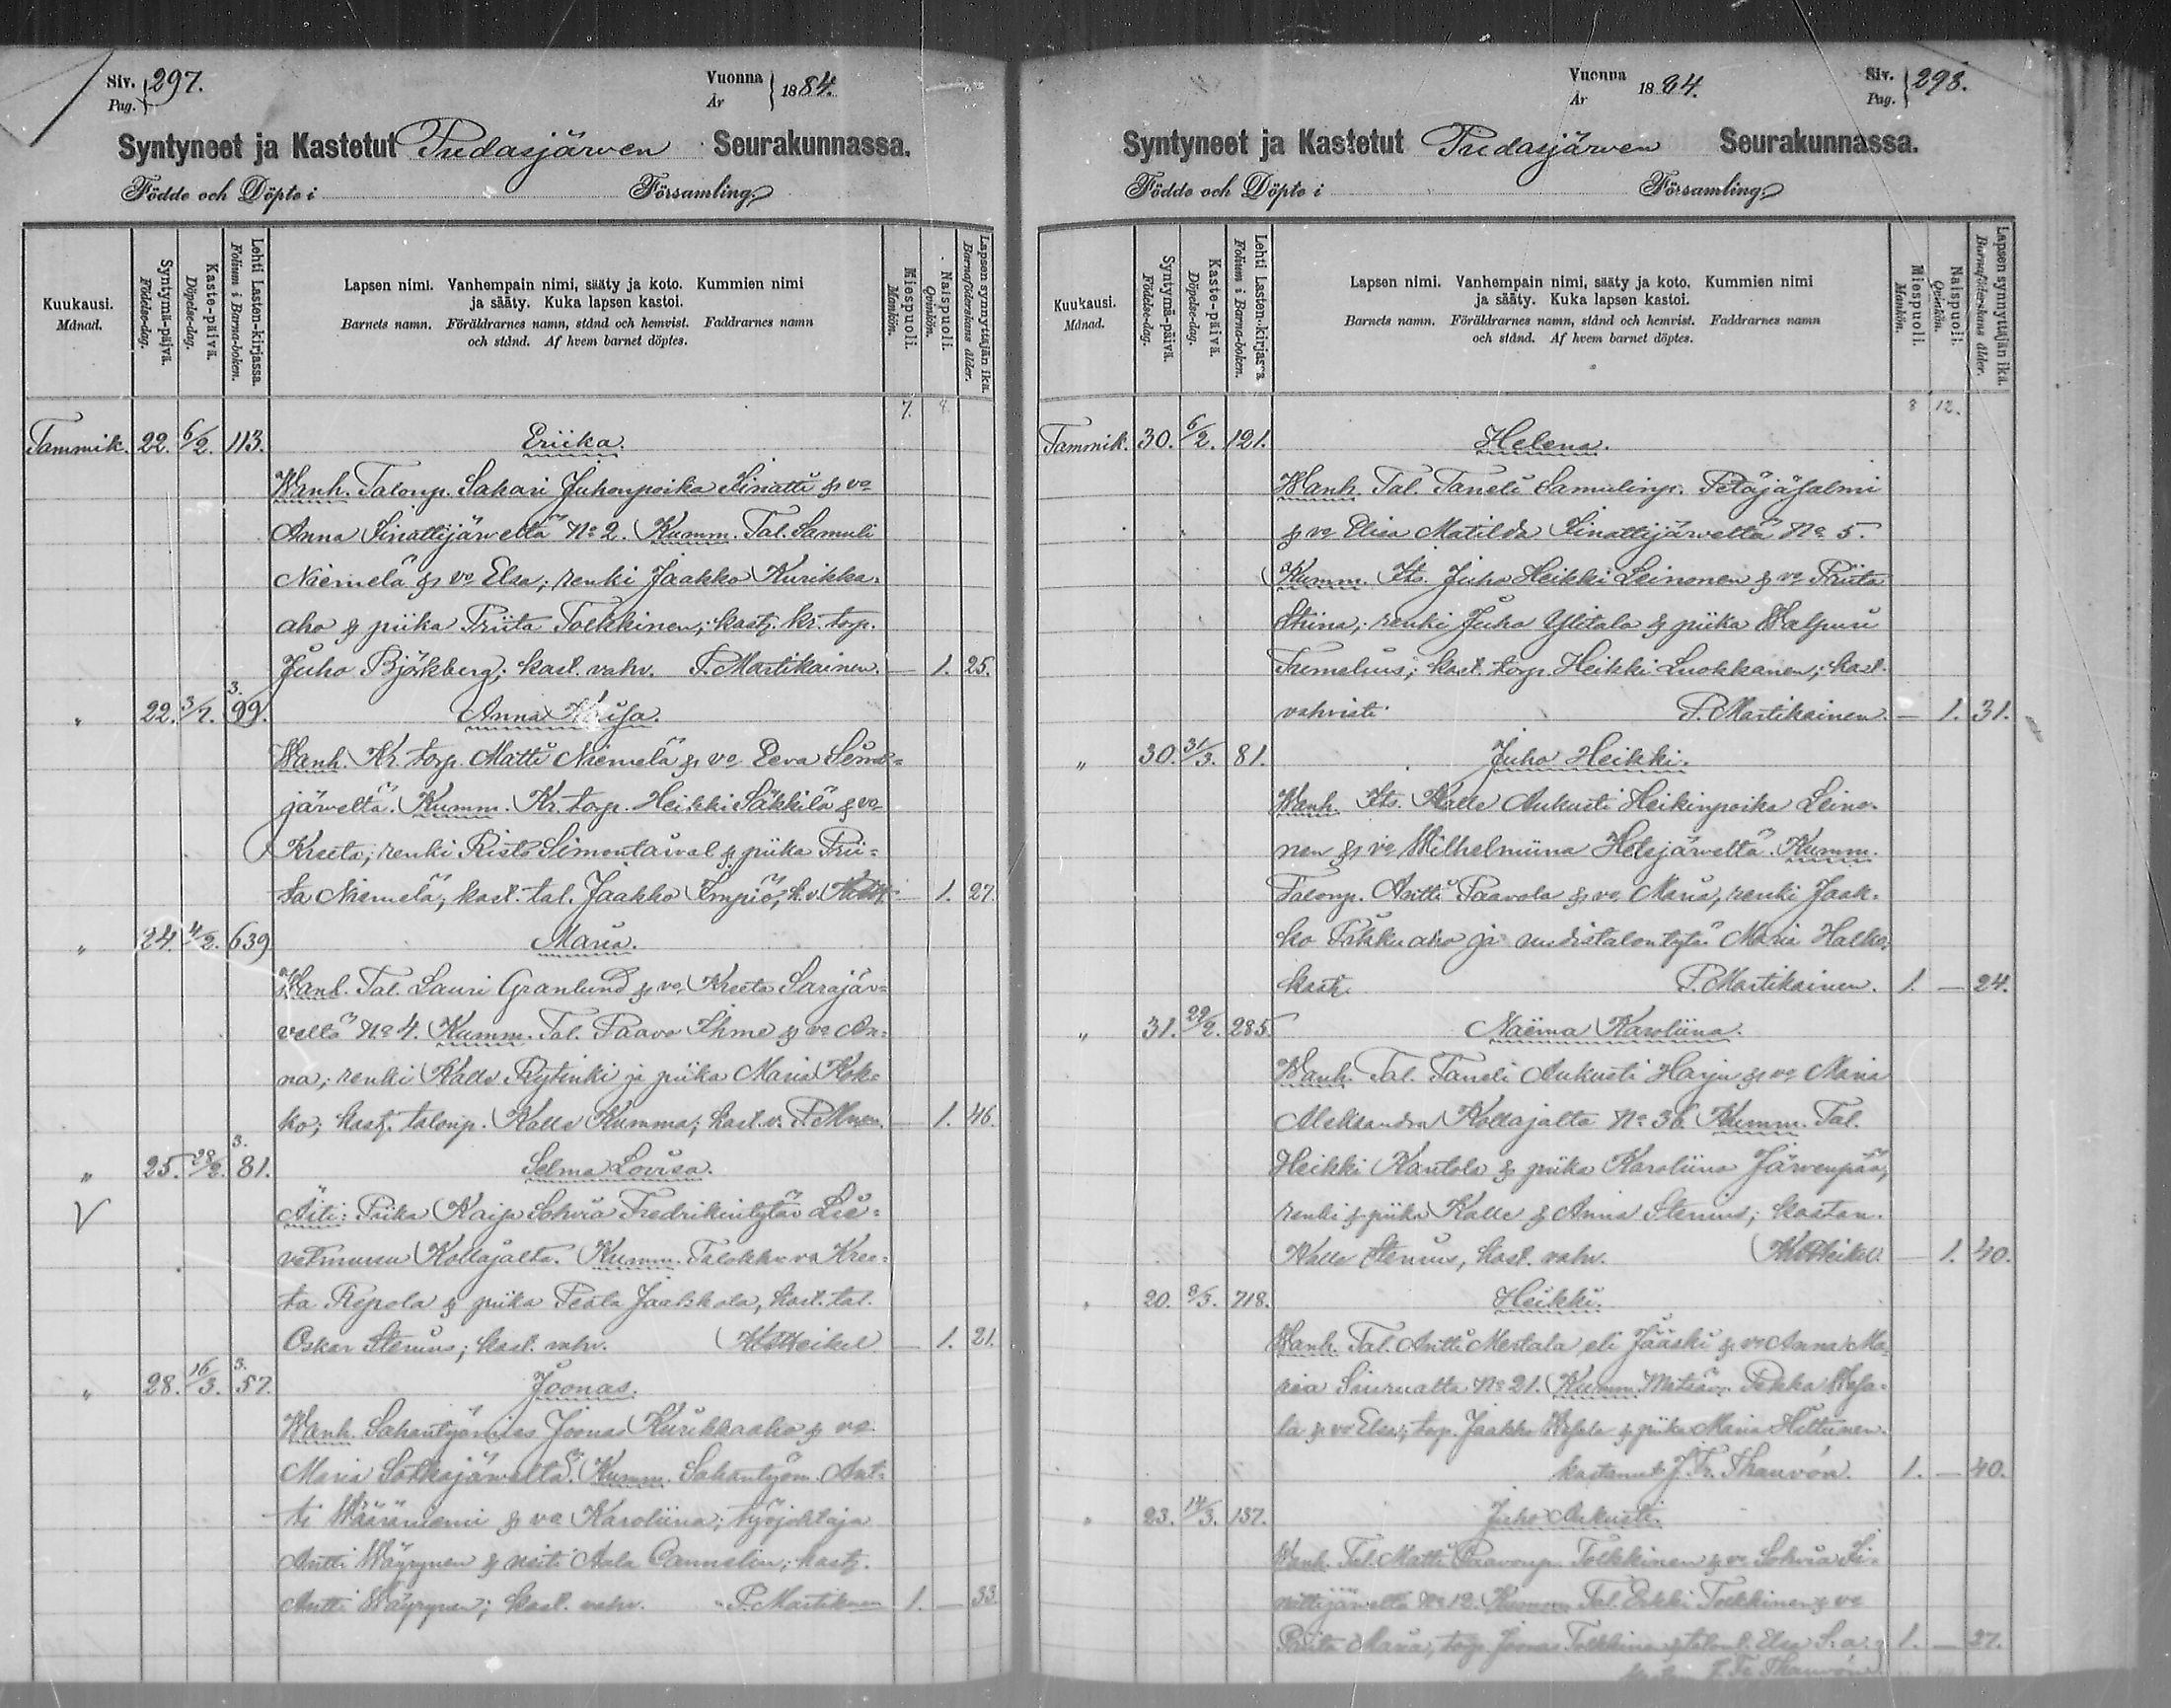 Siv. 297.
Pag.
Vuonna 1884.
År
Syntyneet ja Kastetut Pudasjärven Seurakunnassa.
Födde och Döpte i Församling
Kuukausi.
Månad.
Syntymä-päivä.
Födelse-dag.
Kaste-päivä.
Döpelse-dag.
Lehti Lasten-kirjassa.
Folium i Barna-boken.
Lapsen nimi. Vanhempain nimi, sääty ja koto. Kummien nimi
ja sääty. Kuka lapsen kastoi.
Barnets namn. Föräldrarnes namn, stånd och hemvist. Faddrarnes namn
och stånd. Af hvem barnet döptes.
Miespuoli.
Mankön.
Naispuoli.
Qvinkön.
Lapsen synnyttäjän ikä.
Barnaföderskans ålder.
7. 4.
Tammik. 22. 6/2. 113. Eriika.
Wanh. Talonp. Sakari Juhonpoika Siniatti & vo
Anna Sinattijärveltä No 2. Kumm. Tal. Samuli
Niemelä & vo Elsa; renki Jaakko Kurikka-
aho & piika Priita Tolkkinen; kastj. kr. torp.
Juho Björkberg; kast. vahv. P. Martikainen. — 1. 25.
" 22. 3/2. 3. 99. Anna
Wanh. Kr. torp. Matti Niemelä & vo Eeva
järveltä. Kumm. Kr. torp. Heikki Säkkilä & vo
Kreeta; renki Risto Simontaival & piika Prii=
ta Niemelä; kast. tal. Jaakko Impiö; k. v. — 1. 27.
" 24. 4/2. 639 Maria.
Wanh. Tal. Lauri Granlund & vo Kreeta Sarajär=
veltä No 4. Kumm. Tal. Paavo Ihme & vo An=
na; renki Kalle Rytinki ja piika Maria Kok=
ko; kastj. talonp. Kalle Kumma; kast. v. — 1. 46.
" 25. 28/2. 3. 81. Selma Lovisa.
V
Äiti: Piika Kaija Sohvia Fredrikintytär Lie=
Kollajalta. Kumm. Talokkv. va Kree=
ta Repola & piika Jaakkola, kast. tal.
Oskar Stenius; kast. vahv. — 1. 21.
" 28. 16/3. 3. 57. Joonas.
Wanh. Sahantyömies Joonas Kurikkaaho & vo
Maria Sotkajärveltä. Kumm. Sahantyöm. Ant=
ti Määräniemi & vo Karoliina; työjohtaja
Antti Wäyrynen & neiti Aala Cannelin; kastj.
Antti Wäyrynen; kast. vahv. P. Martiknen 1. — 33.
Vuonna 1884.
År
Siv. 298.
Pag.
Syntyneet ja Kastetut Pudasjärven Seurakunnassa.
Födde och Döpte i Församling
Kuukausi.
Månad.
Syntymä-päivä.
Födelse-dag.
Kaste-päivä.
Döpelse-dag.
Lehti Lasten-kirjassa.
Folium i Barna-boken.
Lapsen nimi. Vanhempain nimi, sääty ja koto. Kummien nimi
ja sääty. Kuka lapsen kastoi.
Barnets namn. Föräldrarnes namn, stånd och hemvist. Faddrarnes namn
och stånd. Af hvem barnet döptes.
Miespuoli.
Mankön.
Naispuoli.
Qvinkön.
Lapsen synnyttäjän ikä.
Barnaföderskans ålder.
8 12.
Tammik. 30. 6/2. 121. Helena.
Wanh. Tal. Taneli Samulinp. Petäjäsalmi
& vo Elisa Matilda Sinattijärveltä No 5.
Kumm. Its. Juho Heikki Leinonen & vo Priita
Stiina; renki Juho Ylitalo & piika Walpuri
kast. torp. Heikki Luokkanen; kast.
vahvisti P. Martikainen. — 1. 31.
" 30. 31/3. 81. Juho Heikki.
Wanh. Its. Kalle Aukusti Heikinpoika Leino-
nen & vo Wilhelmiina Hetejärveltä. Kumm.
Talonp. Antti Paavola & vo Maria, renki Jaak-
ko Pikkuaho ja uudistalontytär Maria Halko;
kastj. P. Martikainen. 1. — 24.
" 31. 22/2. 285. Naëma Karoliina.
Wanh. Tal. Taneli Aukusti Harju & vo Maria
Aleksandra Kollajalta No 36. Kumm. Tal.
Heikki Kantola & piika Karoliina Järvenpää,
renki & piika Kalle & Anna Stenius; kastan.
Kalle Stenius, kast. vahv. — 1. 40.
" 20. 8/3. 718. Heikki.
Wanh. Tal. Antti Mertala eli Jääski & vo Anna Ma-
ria Siuruatta No 21. Kumm. Pekka
la & vo Elsa; torp. Jaakko & piika Maria Hiltunen.
kastanut J. Fr. Thauvón. 1. — 40.
" 23. 14/3. 137. Juho Aukusti.
Wanh. Tal. Matti Paavonp. Tolkkinen & vo Sohvia Si-
nättijärveltä No 12. Kumm. Tal. Erkki Tolkkinen & vo
Priita Maria, torp. Joonas Tolkkinen & Elsa S:a; 1. — 27.
J. Fr. Thauvón